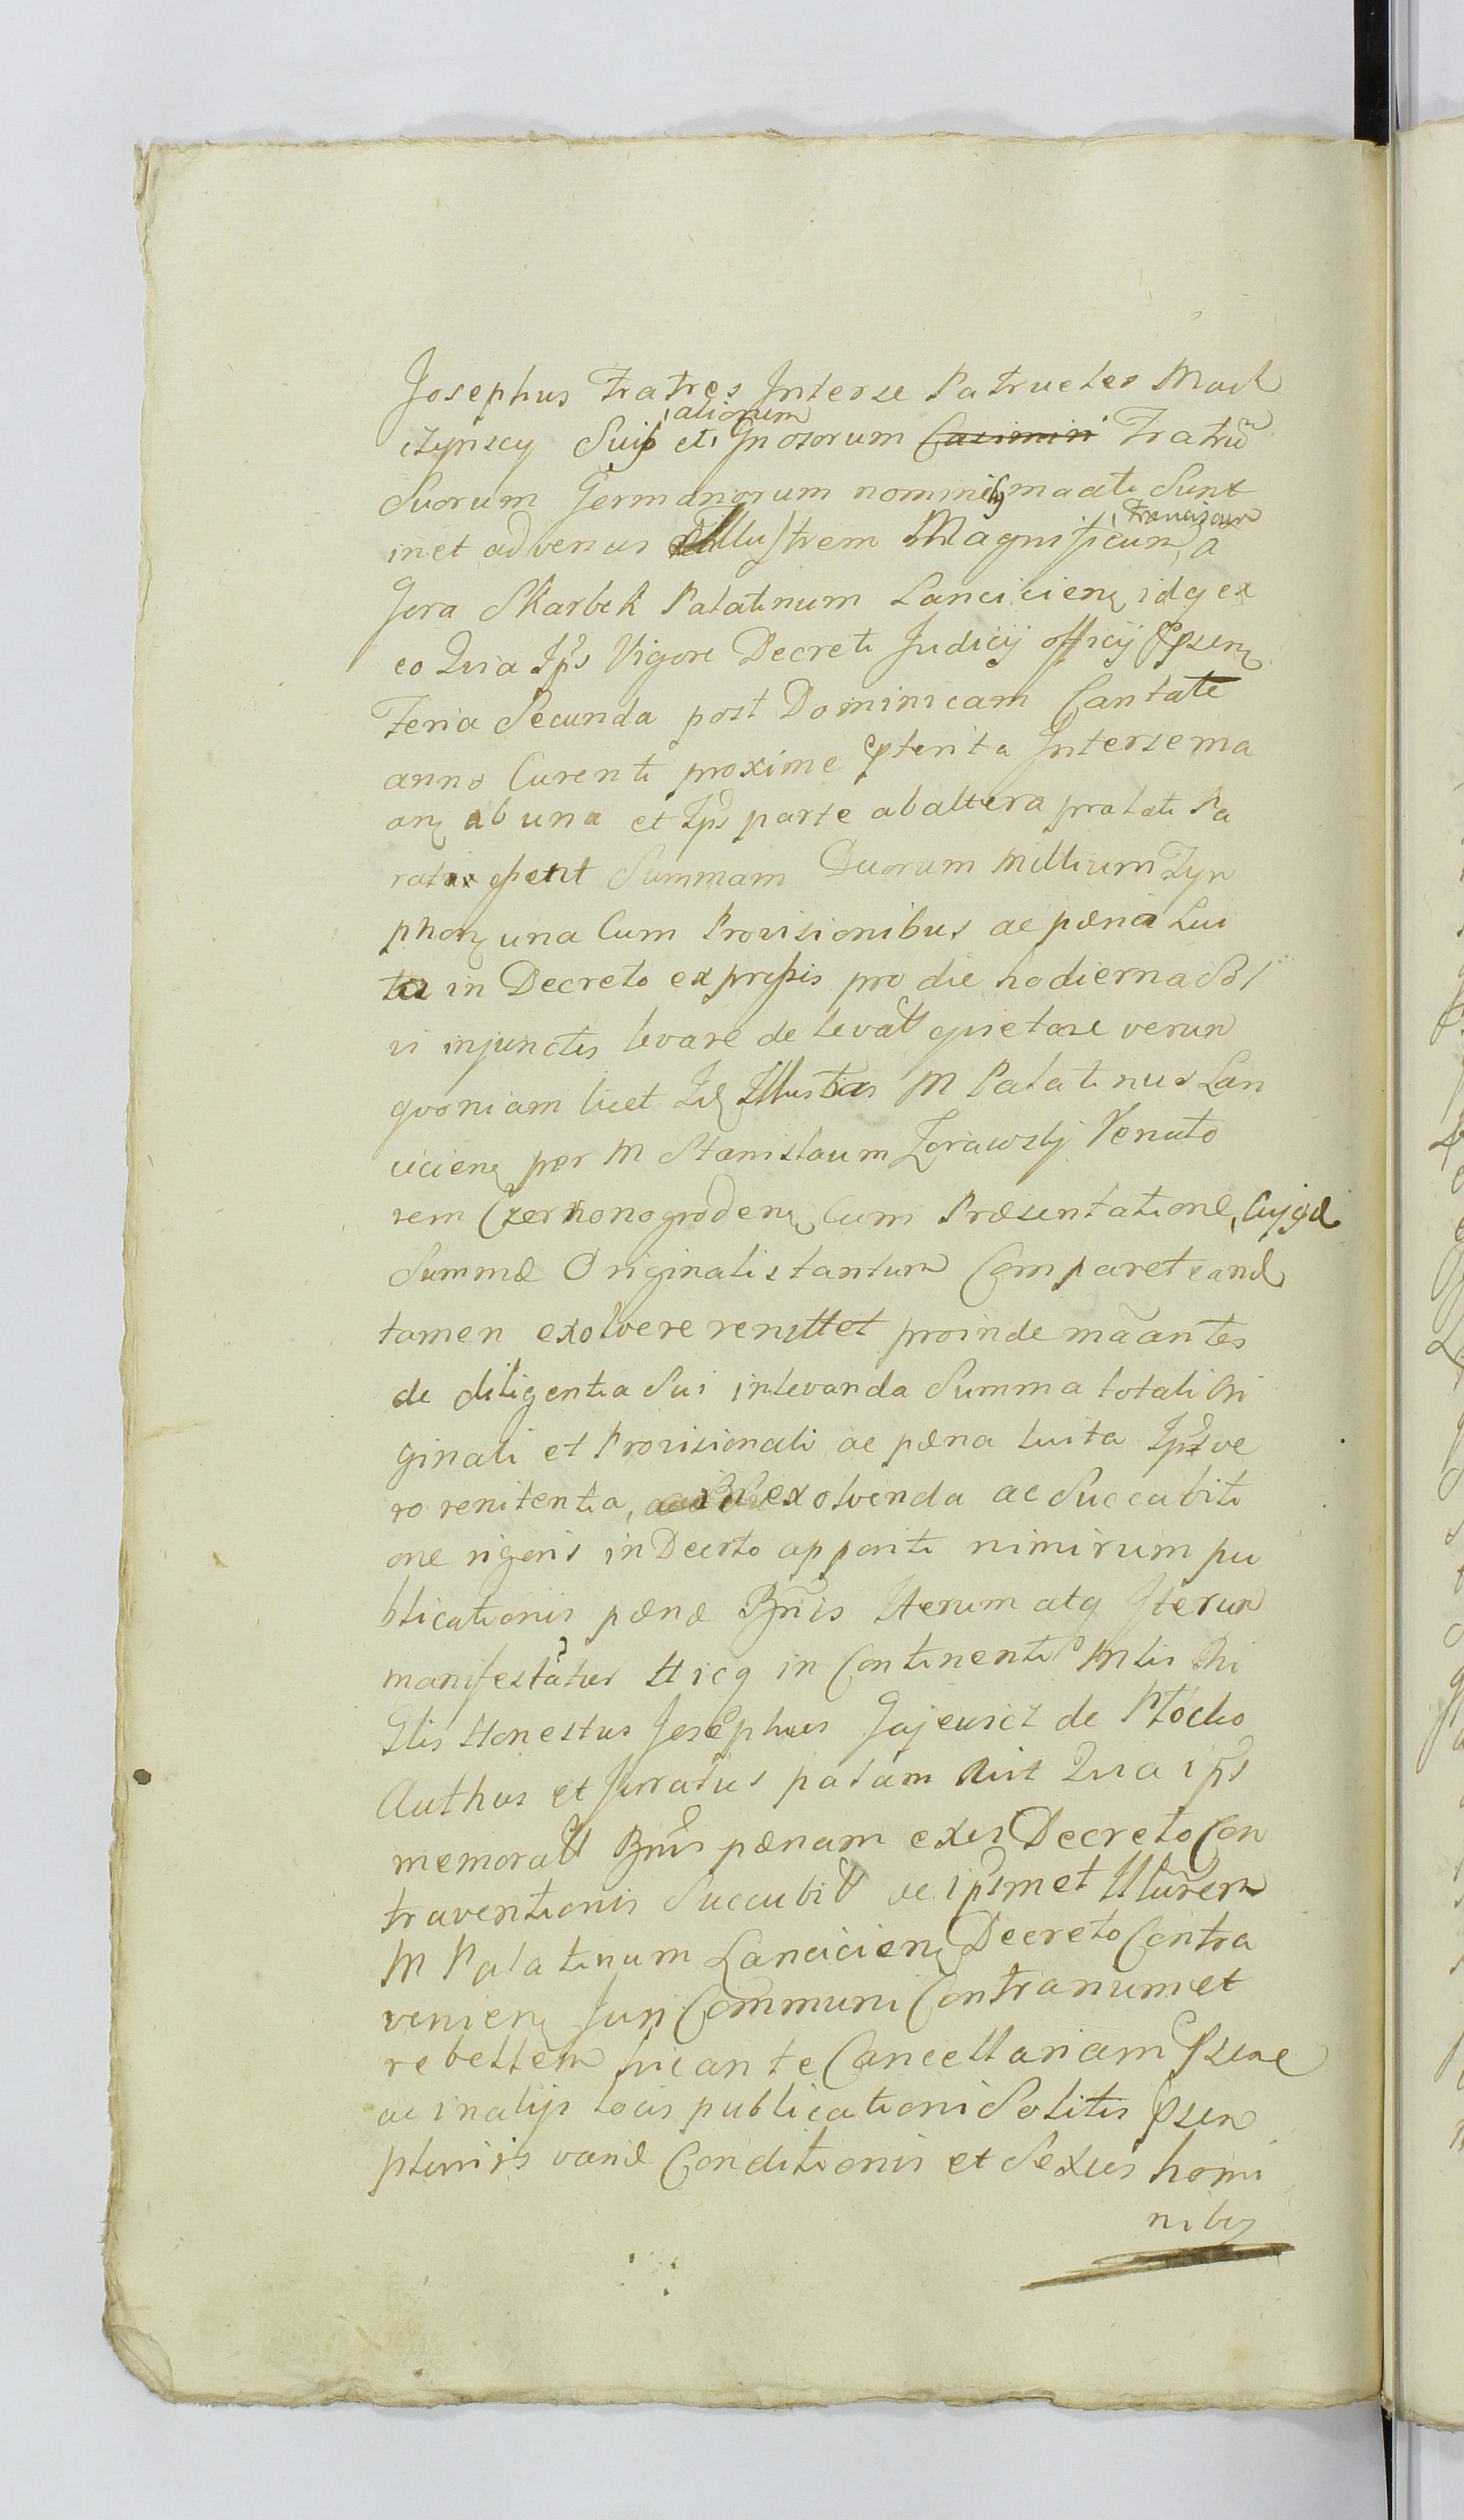 Josephus Fratres Interse Patrueles Mad
czynscy Suis et aliorum Gnosorum Casimiri Fratrũ
Suorum Germanorum nominibg maati Sunt
inet adversus Illustrem Magnificum Franciscum a
Gora Skarbek Palatinum Lancicien idq ex
eo Quia Ips Vigore Decreti Judicij officij Psen
Feria Secunda post Dominicam Cantate
anno Curenti proxime Pterita Interse ma
an ab una et Ips parte ab altera pralati Pa
rati Summam Duorum Millium Tyn
phon una Cum Provisionibus ac pœna Lui
ta in Decreto expressis pro die hodierna Sol
vi injunctis levare de levatt quietare verum
qvoniam licet Id Illustris M Palatinus Lan
cicien per M Stanislaum Zorawsky Venato
rem Czernonogroden Cum Præsentatione, Cujq
Summæ Originalis tantum Comparet eand
tamen exolvere renittet proinde mãantes
de diligentia Sui in levanda Summa totali Ori
ginali et Provisionali ac pœna luita Ips ve
ro renitentia, exolvenda ac Succubiti
one rigoris in Decrto appositi nimirum pu
blicationis pœnæ Bnis Iterum atq Iterum
manifestãtur Hicq in Continenti Mlis Mi
Glis Honestus Josephus Gajewicz de Płocko
Authus et Jurratus palam Quia ips
memoratt Bnis pœnam exis Decreto Con
traventionis Succubitt ac ipsmet Illũrem
M Palatinum Lancicien Decreto Contra
venien Juri Communi Contrarium et
rebellem hic ante Cancellariam Psene
ac in alijs locis publicationi Solitis Psen
pluriis variæ Conditionis et Sexus homi
nibg